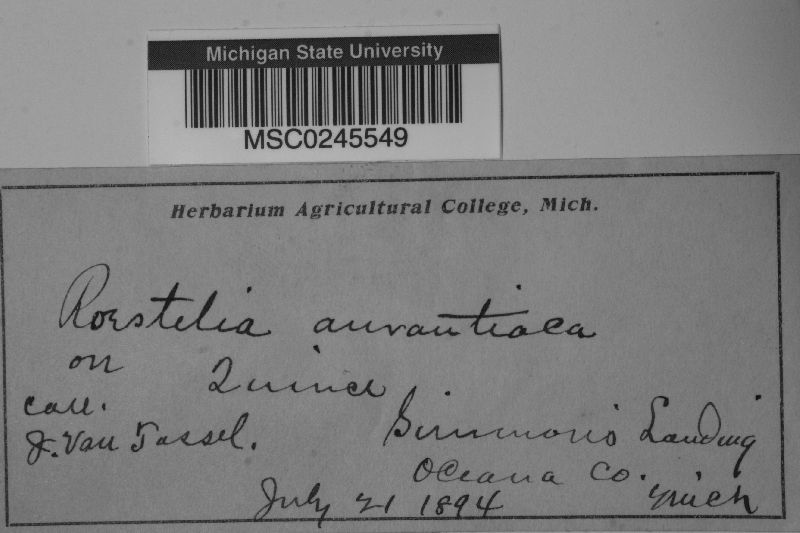 Michigan State University
MSC0245549
Herbarium Agricultural College, Mich.
Roestelia aurantiaca
on Quince
coll.
J. Van Tassel.
Simmons Landing
Oceana Co. Mich
July 21 1894